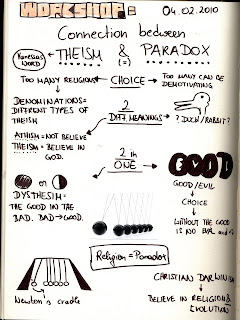 WORKSHOP:
04.02.2010
Connection between
THEISM & PARADOX
WORD
(=)
TOO MANY RELIGIONS
CHOICE
TOO MANY CAN BE
DEMOTIVATING
DENOMINATIONS=
DIFFERENT TYPES OF
THEISM
2
DIFF. MEANINGS
? DUCK/RABBIT?
ATHISM= NOT BELIEVE
THEISM= BELIEVE IN
GOD.
2 in
ONE
GOOD/EVIL
OR
CHOICE
DYSTHESIM=
THE GOOD IN THE
BAD. BAD → GOOD.
WITHOUT THE GOOD
IS NO EVIL
Religion = Paradox
Newton's cradle
CHRISTIAN DARWINISM
BELIEVE IN RELIGION &
EVOLUTION